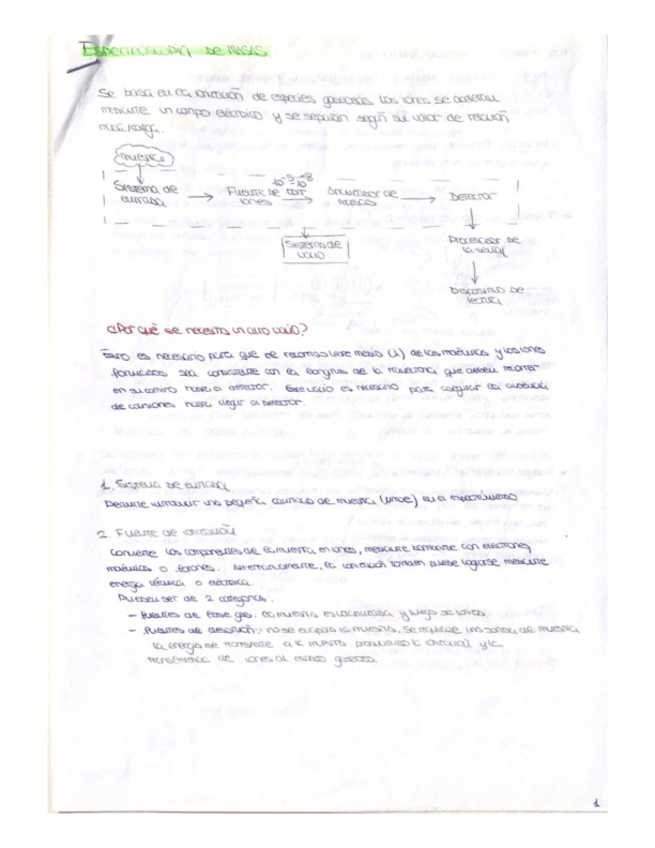 ESPECTROSCOPIA DE MASAS
Se basa en la ionización de especies gaseosas. Los iones se aceleran
mediante un campo eléctrico y se separan según su valor de relación
masa/carga.
muestra
Sistema de entrada
Fuente de iones
10⁻⁵ - 10⁻⁸
Analizador de masas
Detector
Sistema de vacío
Procesador de la señal
Dispositivo de lectura
¿Por qué se necesita un alto vacío?
Esto es necesario para que el recorrido libre medio (λ) de las moléculas y los iones
formados sea consistente con la longitud de la trayectoria que deben
en su camino hasta el detector. Ese vacío es necesario para asegurar la ausencia
de colisiones hasta llegar al detector.
1. Sistema de entrada
Permite introducir una pequeña cantidad de muestra (μmol) en el espectrómetro
2. Fuente de ionización
Convierte los componentes de la muestra en iones, mediante bombardeo con electrones,
moléculas o fotones. Alternativamente, la ionización también puede lograrse mediante
energía térmica o eléctrica.
Pueden ser de 2 categorías:
- fuentes de fase gas: la muestra es vaporizada y luego se ioniza
- fuentes de desorción: no se evapora la muestra, se una sonda de muestra
la energía se transmite a la muestra produciendo la ionización y la
transferencia de iones al estado gaseoso.
1